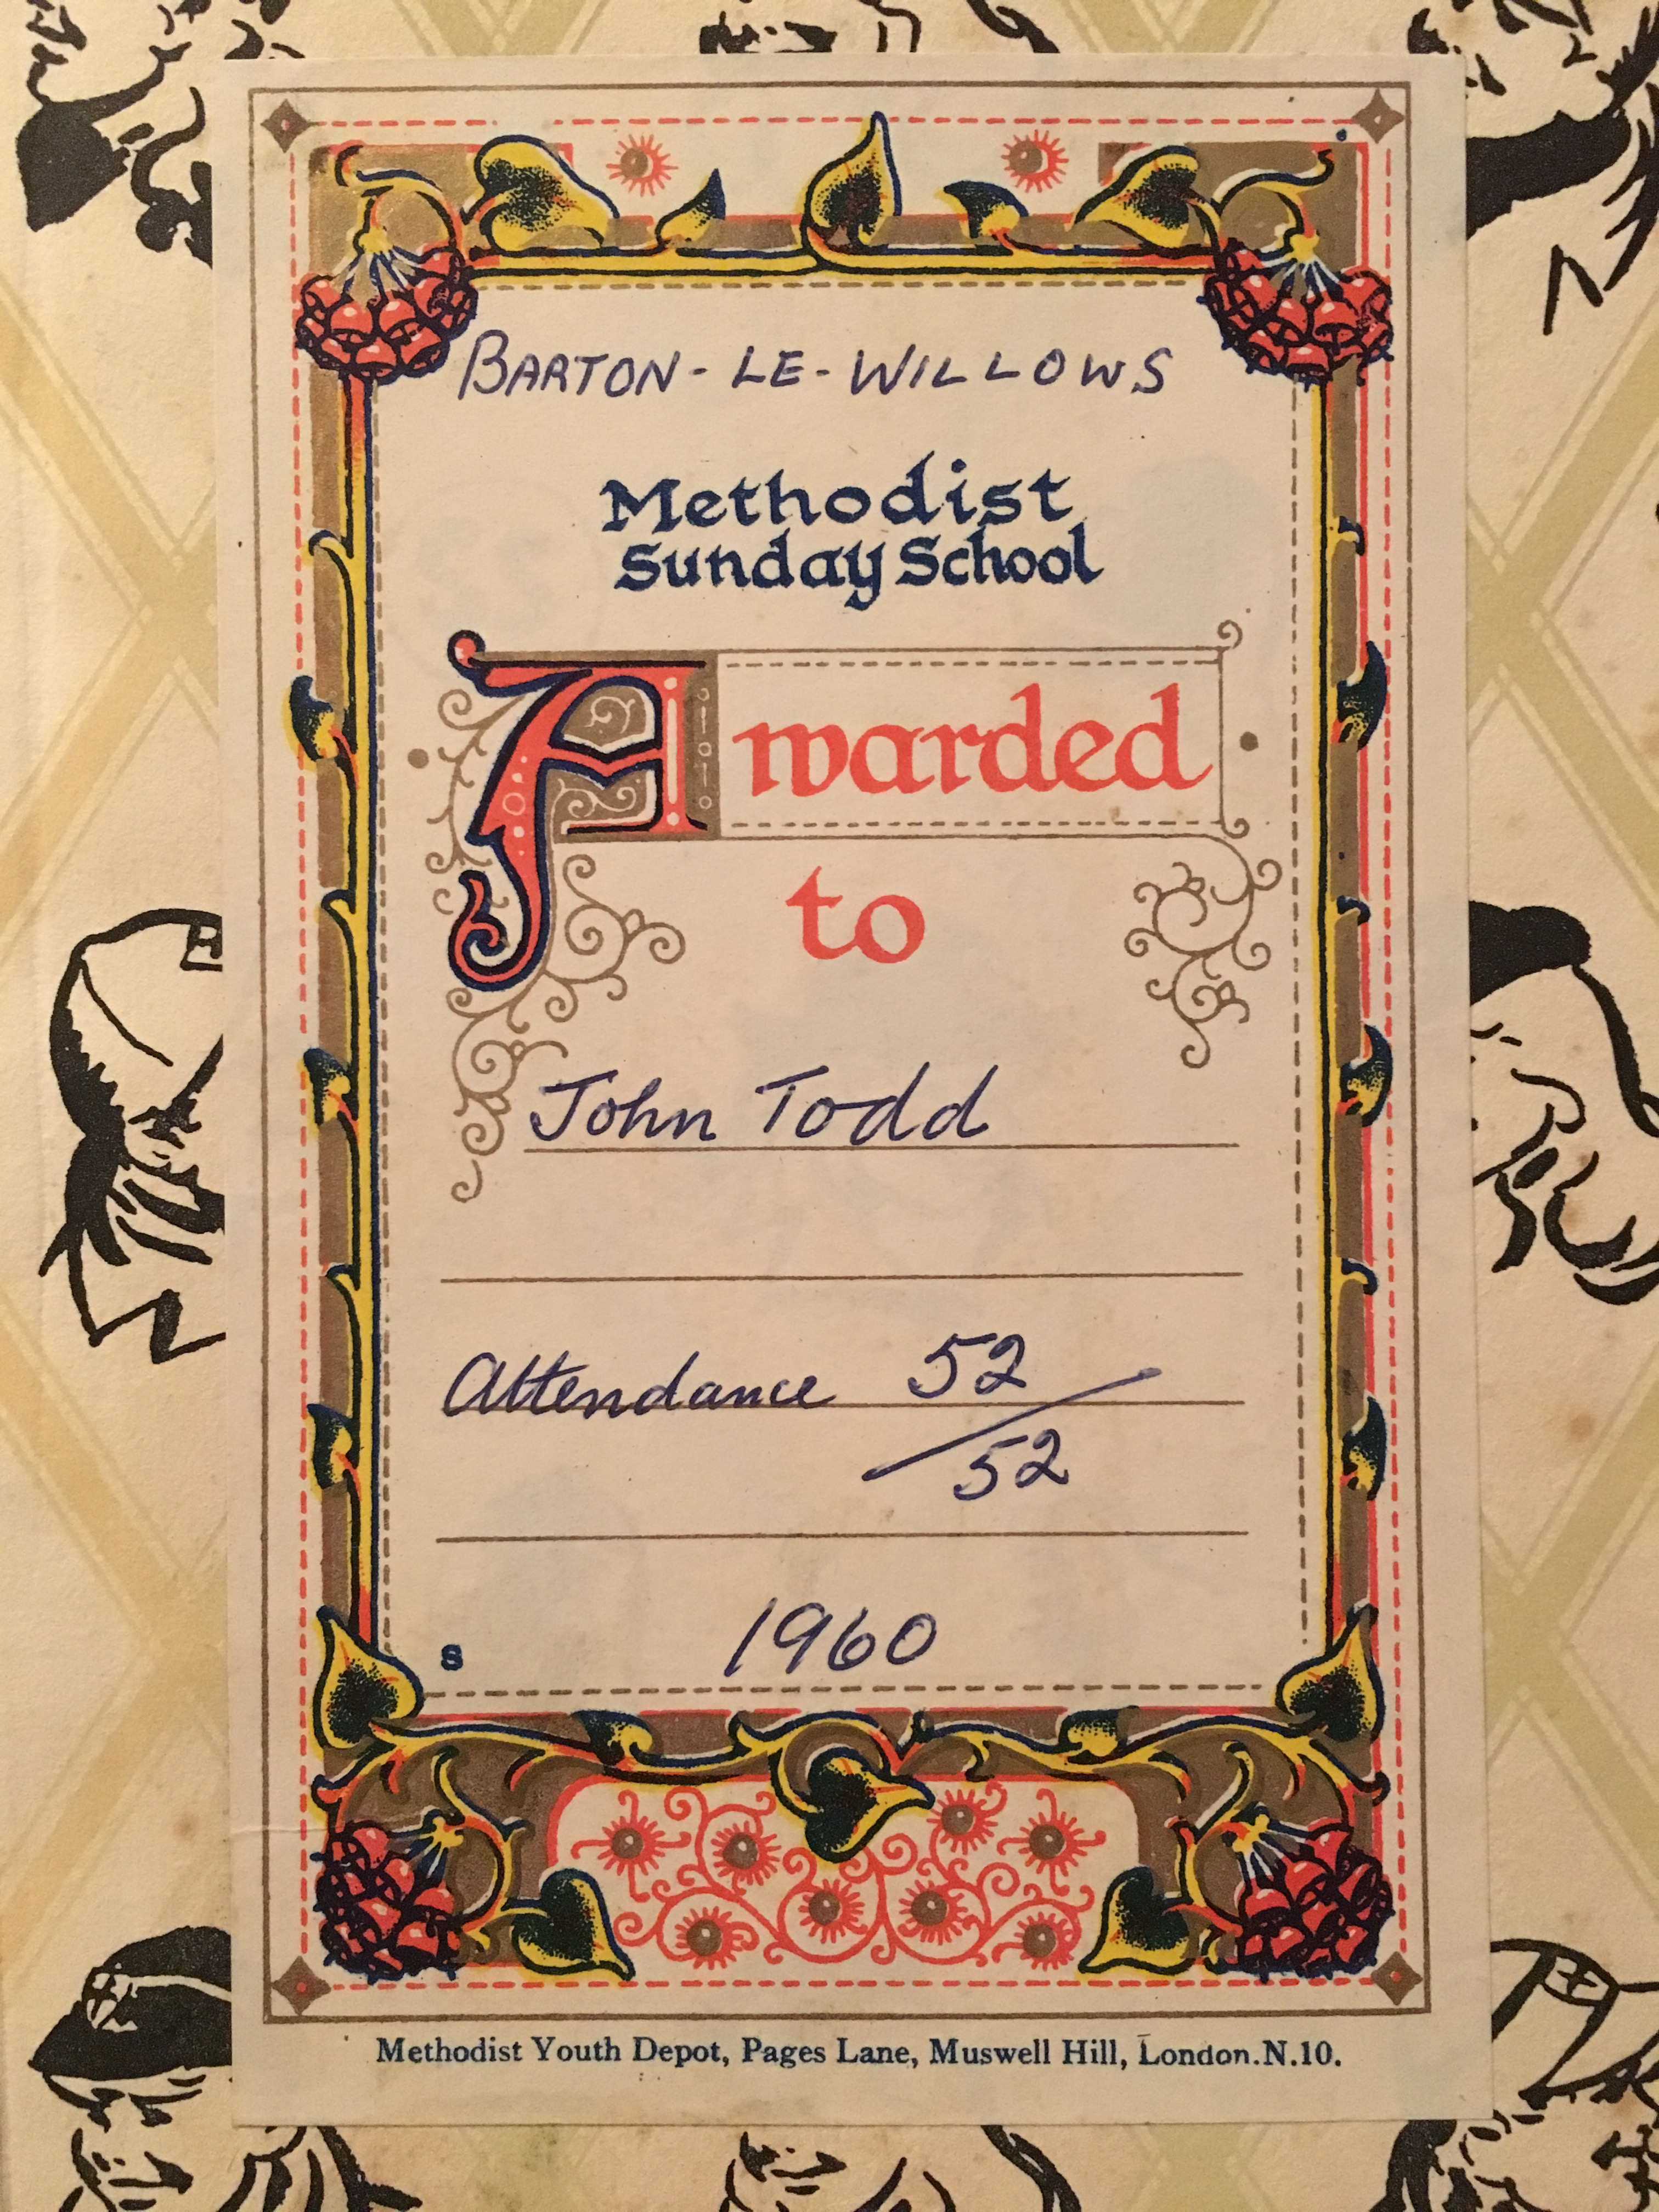 BARTON-LE-WILLOWS
Methodist
Sunday School
Awarded
to
John Todd
Attendance 52/52
1960
s
Methodist Youth Depot, Pages Lane, Muswell Hill, London.N.10.